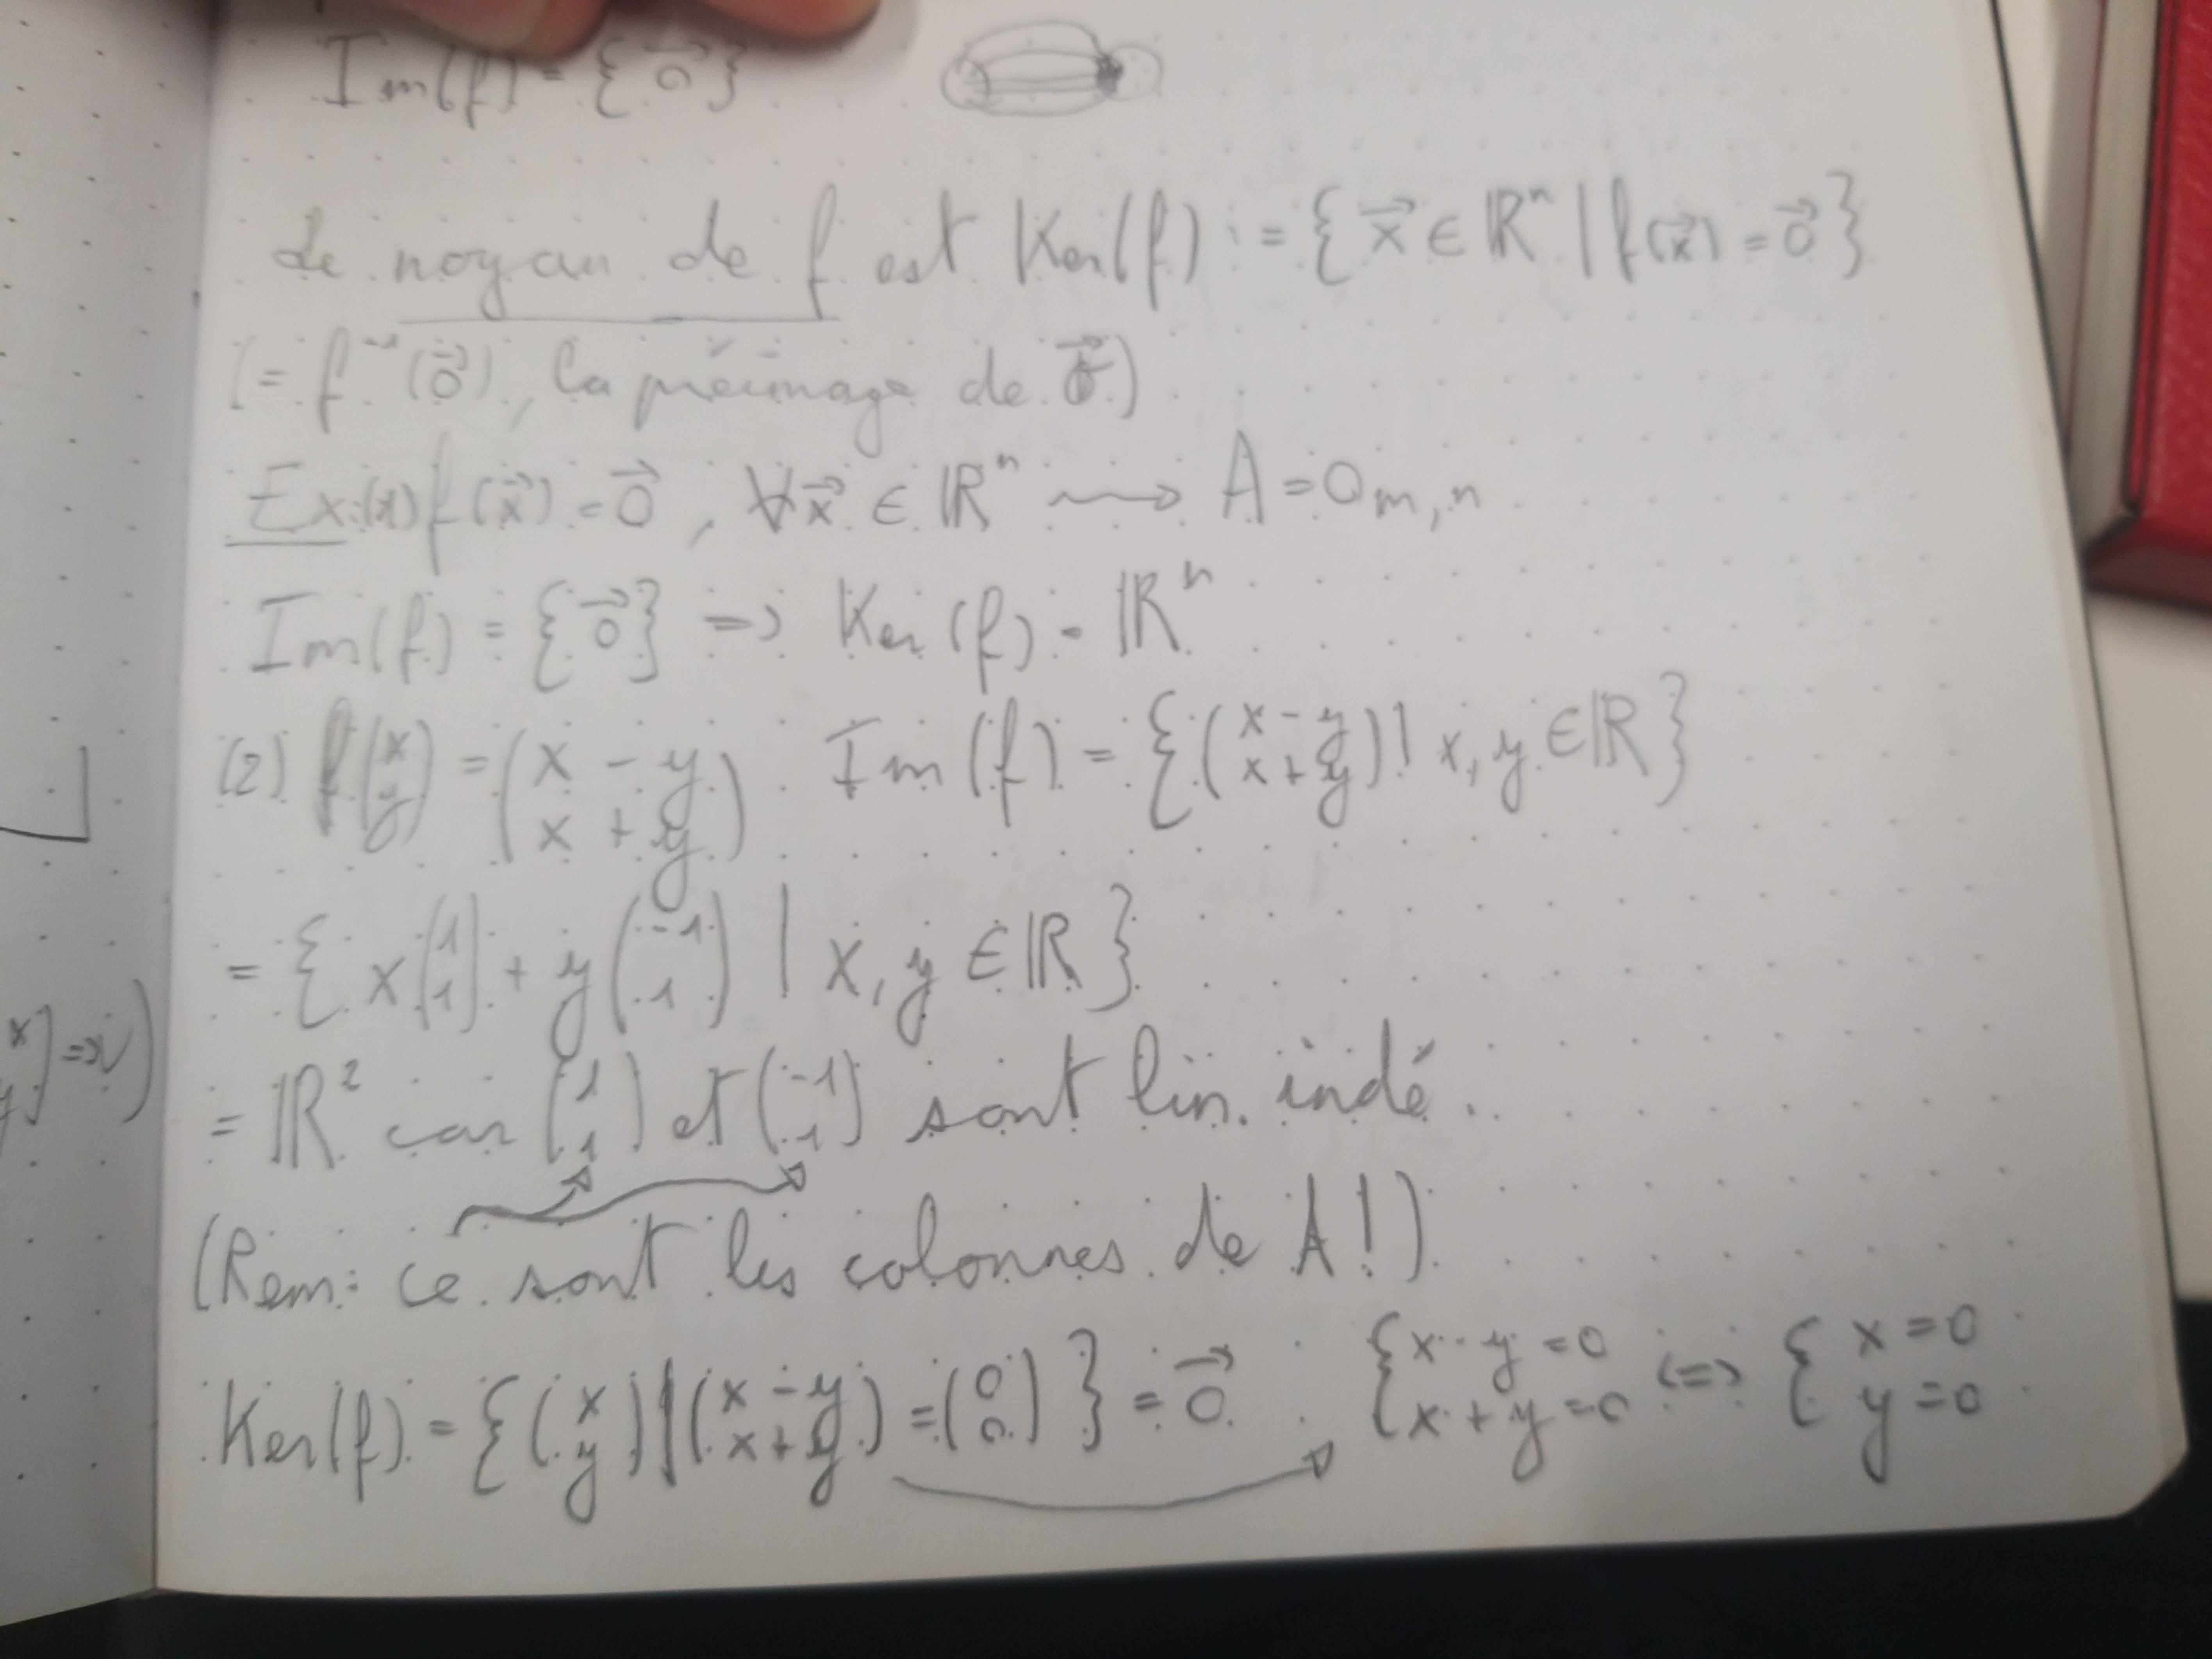 Im(f) = {0⃗}
Le noyau de f est Ker(f) := {x⃗ ∈ ℝⁿ | f(x⃗) = 0⃗}
(= f⁻¹(0⃗), la préimage de 0⃗)
Ex: (1) f(x⃗) = 0⃗, ∀x⃗ ∈ ℝⁿ ⟿ A = 0m,n
Im(f) = {0⃗} => Ker(f) = ℝⁿ
(2) f(x y) = (x - y x + y) Im(f) = {(x - y x + y) | x, y ∈ ℝ}
= {x(1 1) + y(-1 1) | x, y ∈ ℝ}
= ℝ² car (1 1) et (-1 1) sont lin. indé.
(Rem: ce sont les colonnes de A!)
Ker(f) = {(x y) | (x - y x + y) = (0 0)} = 0⃗ {x - y = 0 x + y = 0 <=> {x = 0 y = 0